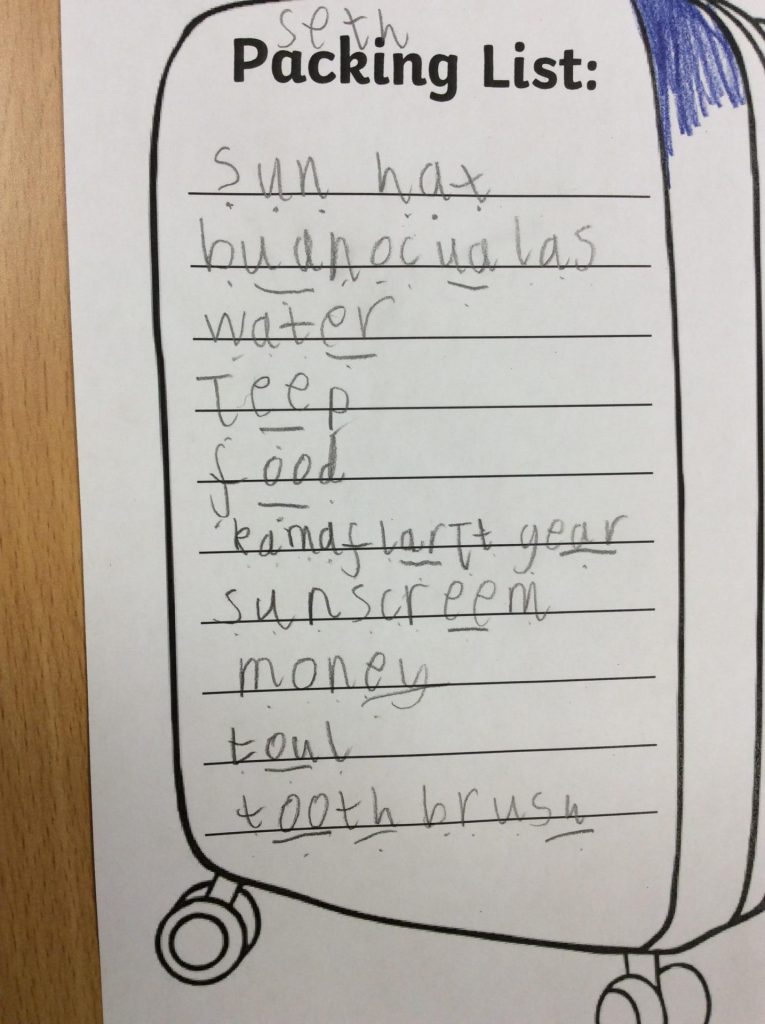 seth
Packing List:
sun hat
buanocualas
water
Teep
food
kamaflarTt gear
sunscreem
money
toul
tooth brush